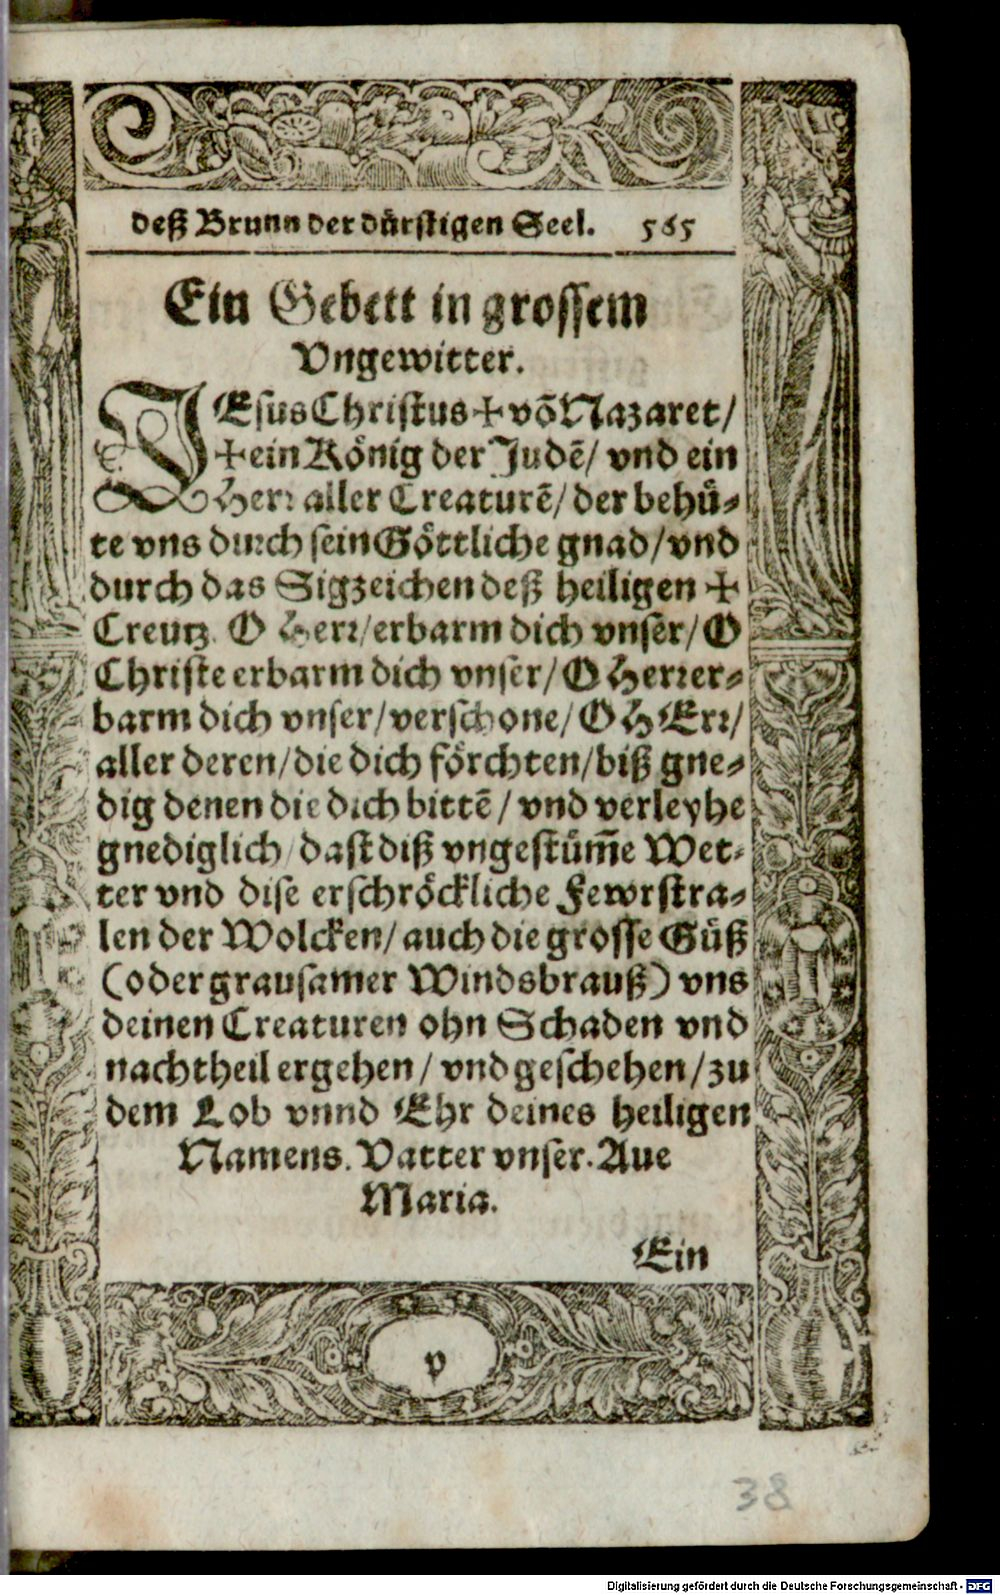 deß Brunn der dürstigen Seel. 565
Ein Gebett in grossem
Vngewitter.
JEsus Christus ✠ võ Nazaret/
✠ ein König der Judẽ/ vnd ein
Herr aller Creaturẽ/ der behü-
te vns durch sein Göttliche gnad/ vnd
durch das Sigzeichen deß heiligen ✠
Creutz. O Herr/ erbarm dich vnser/ O
Christe erbarm dich vnser/ O Herr er-
barm dich vnser/ verschone/ O HErr/
aller deren/ die dich förchten/ biß gne-
dig denen die dich bittẽ/ vnd verleyhe
gnediglich/ dast diß vngestüm̃e Wet-
ter vnd dise erschröckliche Fewrstra-
len der Wolcken/ auch die grosse Güß
(oder grausamer Windsbrauß) vns
deinen Creaturen ohn Schaden vnd
nachtheil ergehen/ vnd geschehen/ zu
dem Lob vnnd Ehr deines heiligen
Namens. Vatter vnser. Aue
Maria.
Ein
p
38
Digitalisierung gefördert durch die Deutsche Forschungsgemeinschaft - DFG